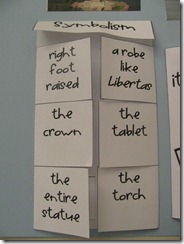 Symbolism
right
foot
raised
a robe
like
Libertas
the
crown
the
tablet
the
entire
statue
the
torch